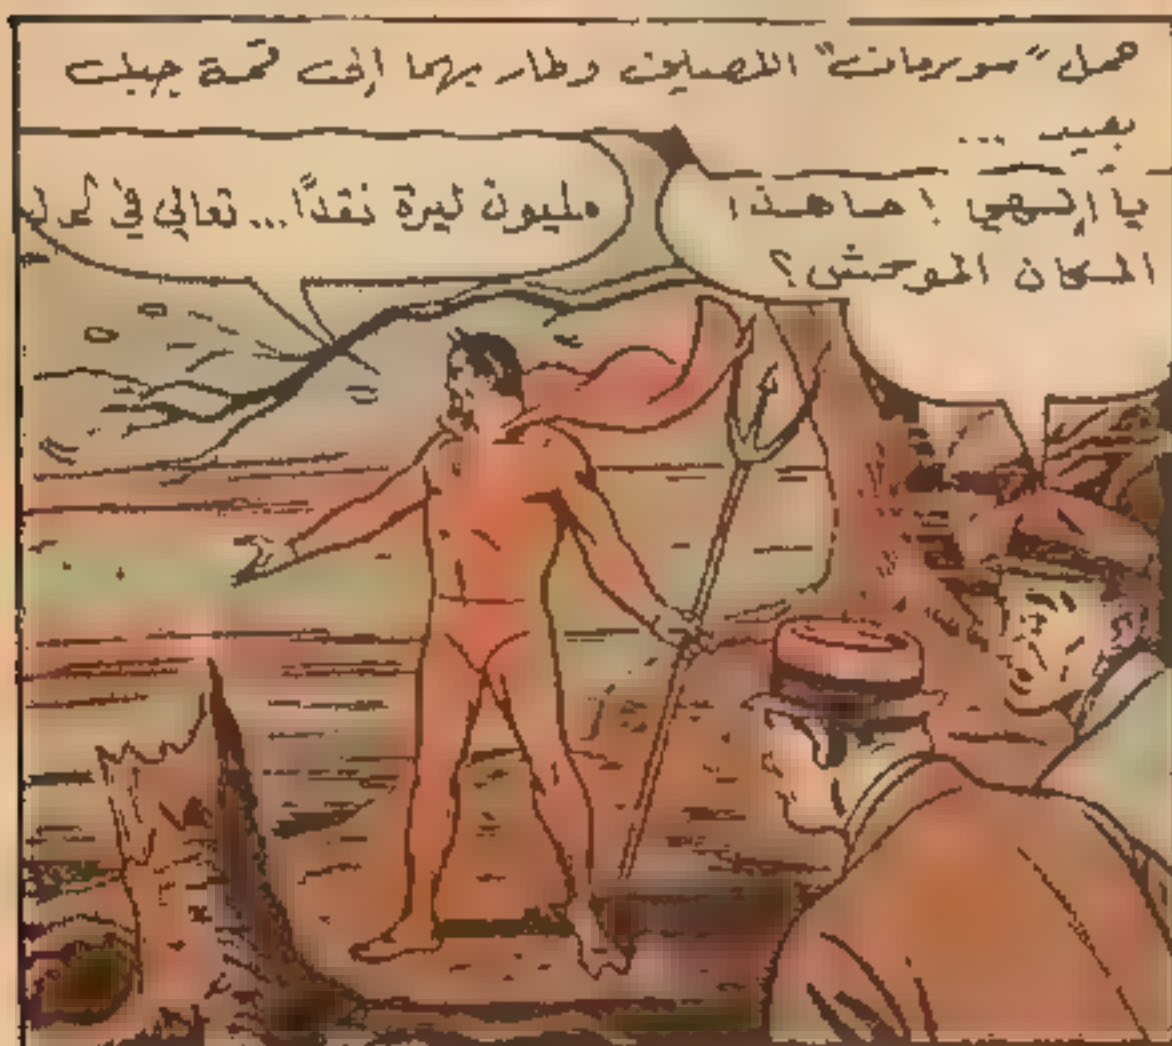 حمل "سوبرمان" اللصين وطار بهما إلى قمة جبل
بعيد ...
يا إلهي ! ما هذا
المكان الموحش ؟
مليون ليرة نقدًا... تعالي في